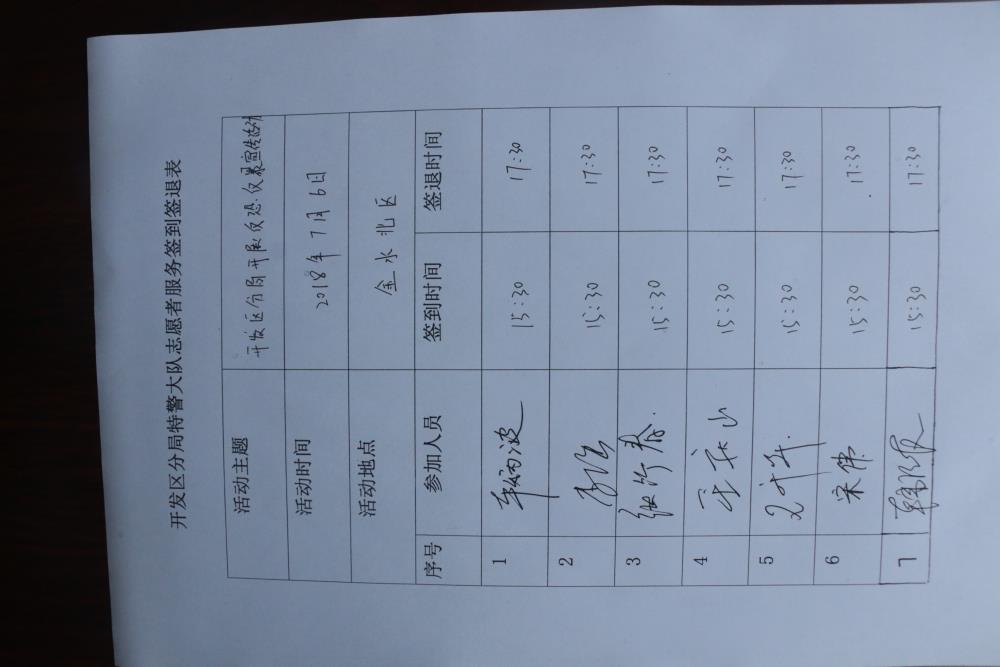 开发区分局特警大队志愿者服务签到签退表
活动主题 开发区分局开展反恐、反暴宣传活动
活动时间 2018年7月6日
活动地点 金水北区
序号 参加人员 签到时间 签退时间
1 15:30 17:30
2 15:30 17:30
3 15:30 17:30
4 15:30 17:30
5 15:30 17:30
6 宋伟 15:30 17:30
7 15:30 17:30